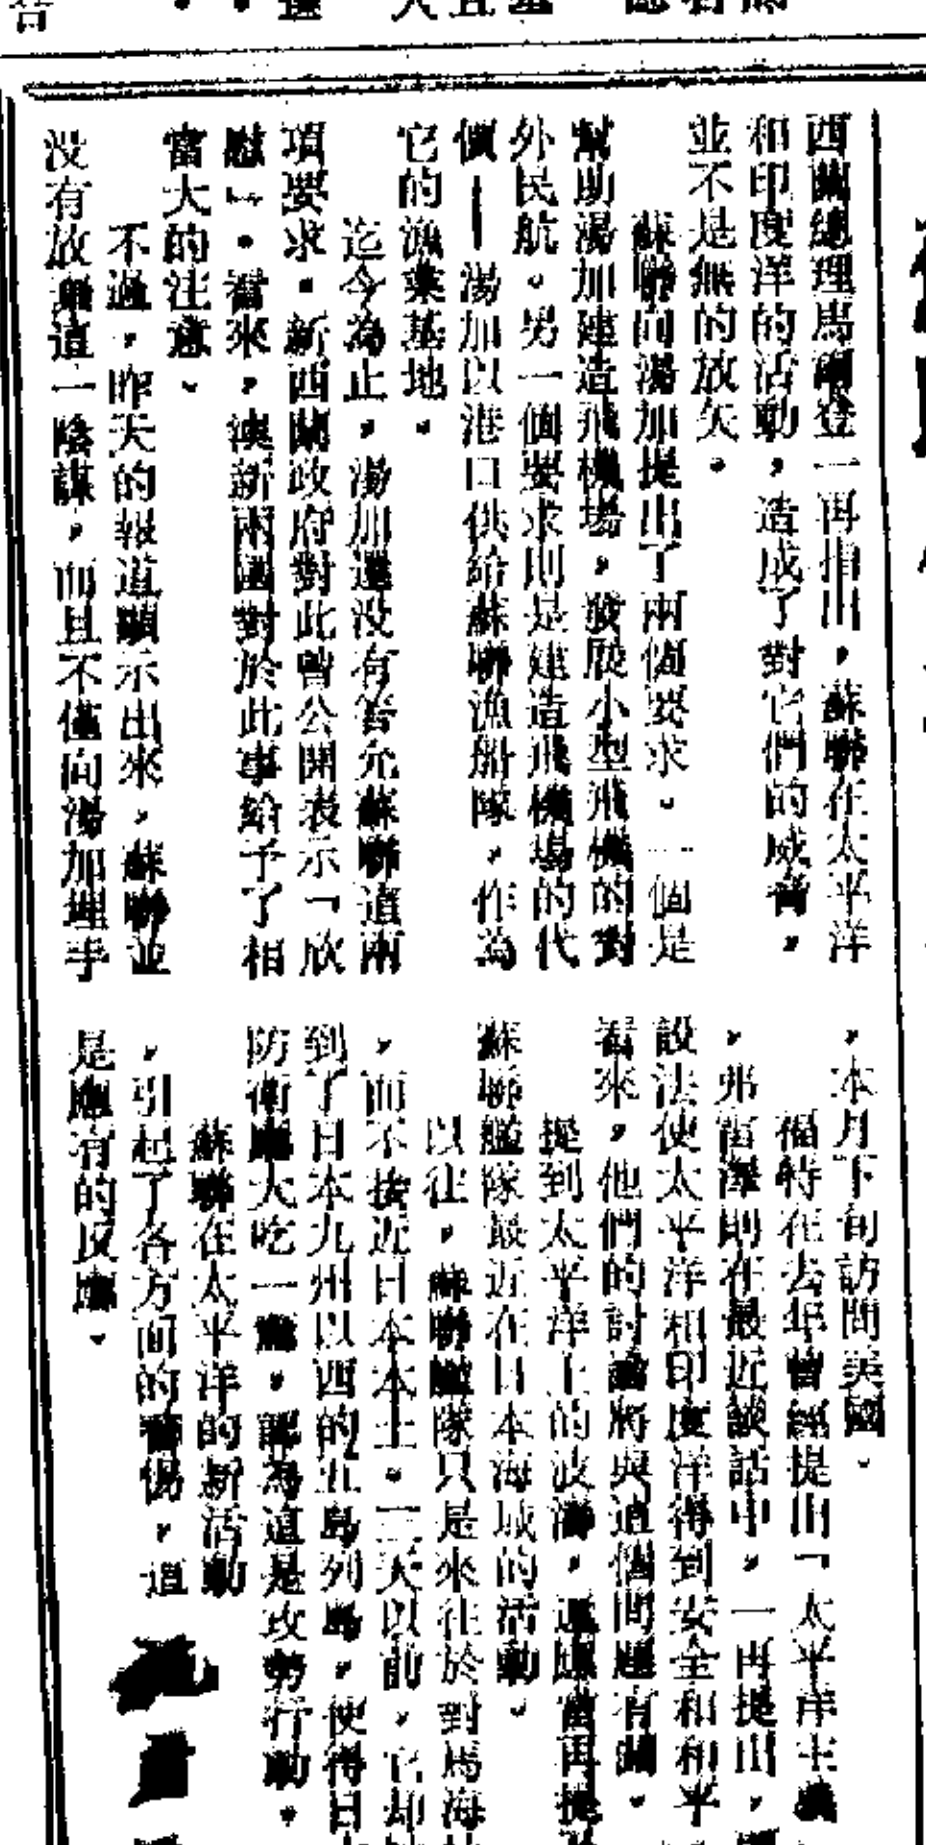 西蘭總理馬爾登一再指出，蘇聯在太平洋
和印度洋的活動，造成了對它們的威脅，
並不是無的放矢。
蘇聯向湯加提出了兩個要求。一個是
幫助湯加建造飛機場，發展小型飛機的對
外民航。另一個要求則是建造飛機場的代
價—湯加以港口供給蘇聯漁船隊，作為
它的漁業基地。
迄今為止，湯加還没有答允蘇聯這兩
項要求。新西蘭政府對此曾公開表示「欣
慰」。看來，澳新兩國對於此事給予了相
當大的注意。
不過，昨天的報道顯示出來，蘇聯並
没有放棄這一陰謀，而且不僅向湯加埋手
，本月下旬訪問美國。
福特在去年曾經提出「太平洋主義
，弗雷澤則在最近談話中，一再提出，
設法使太平洋和印度洋得到安全和和平
看來，他們的討論將與這個問題有關。
提到太平洋上的波濤，還應當再提
蘇聯艦隊最近在日本海域的活動。
以往，蘇聯艦隊只是來往於對馬海
，而不接近日本本土。三天以前，它却
到了日本九州以西的五島列島，使得日
防衛廳大吃一驚，認為這是攻勢行動。
蘇聯在太平洋的新活動
，引起了各方面的警惕，這
是應有的反應。